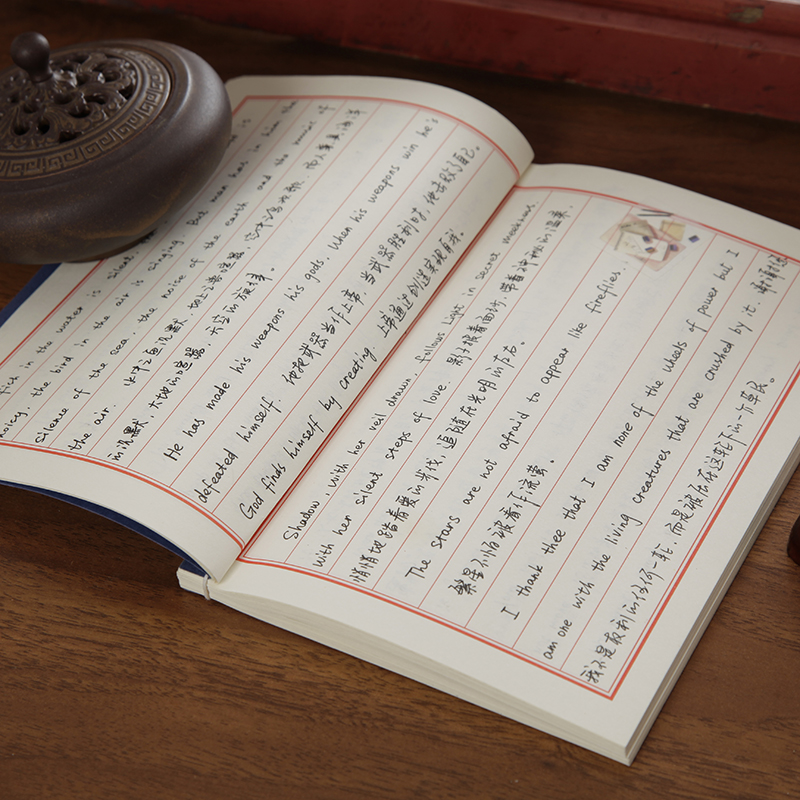 fish in the water is silent, is
noisy, the bird in the air is singing. But man has in him the
silence of the sea the noise of the earth and the music of
the air. 水中之鱼沉默,陆上之兽喧嚣,空中之鸟放歌,而人兼具海洋
的沉默,大地的喧嚣,天空的放择。
He has made his weapons his gods. When his weapons win he's
defeated himself. 他把武器当作上帝,当武器胜利时,他击败了自己。
God finds himself by creating. 上帝通过创造实现自我。
Shadow, with her veil drawn, follows Light in secret meekness,
with her silent steps of love. 影子披着面纱,带着神秘的温柔,
悄悄地踏着爱的步伐,追随在光明的左右。
The stars are not afraid to appear like fireflies.
繁星不怕被看作流萤。
I thank thee that I am none of the wheels of power but I
am one with the living creatures that are crushed by it. 谢谢您
我不是权利的任何一轮,而是被压在这轮下的一介草民。